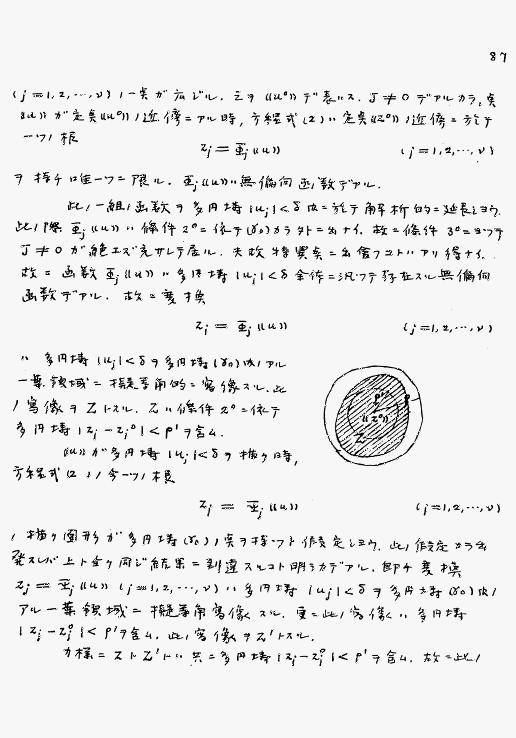 87
(j=1,2,…,ν) ノ一点ガ応ジル. 之ヲ ((u⁰)) デ表ハス. J≠0 デアルカラ, 点
((u)) ガ定点((u⁰))ノ近傍ニアル時, 方程式(2)ハ定点((z⁰))ノ近傍ニ於テ
一ツノ根
z_j = Φ_j((u)) (j=1,2,…,ν)
ヲ持チ唯一ツニ限ル. Φ_j((u))ハ無偏向函数デアル.
此ノ一組ノ函数ヲ多円壔 |u_j|<δ 内ニ於テ解析的ニ延長シヨウ.
此ノ際 Φ_j((u)) ハ條件 2°ニ依テ (γ₀)カラ外ニ出ナイ. 故ニ條件 3°ニヨツテ
J≠0 ガ絶エズ充サレテ居ル. 夫故特異点ニ出會フコトハアリ得ナイ.
故ニ函数 Φ_j((u)) ハ多円壔 |u_j|<δ 全体ニ汎ツテ存在スル無偏向
函数デアル. 故ニ変換
z_j = Φ_j((u)) (j=1,2,…,ν)
ハ 多円壔 |u_j|<δ ヲ多円壔 (γ₀) 内ノアル
一葉領域ニ擬等角的ニ寫像スル. 此
ノ寫像ヲ Z トスル. Z ハ條件 2°ニ依テ
多円壔 |z_j−z_j⁰|<ρ′ヲ含ム.
((u))ガ多円壔 |u_j|<δ ヲ描ク時,
方程式(2)ノ今一ツノ根
z_j = Φ_j((u)) (j=1,2,…,ν)
ノ描ク圖形ガ多円壔 (γ₀)ノ点ヲ持ツト假定シヨウ. 此ノ假定カラ出
発スレバ上ト全ク同ジ結果ニ到達スルコト明ラカデアル. 即チ変換
z_j = Φ_j((u)) (j=1,2,…,ν) ハ多円壔 |u_j|<δ ヲ多円壔 (γ₀) 内ノ
アル一葉領域ニ擬等角寫像スル. 更ニ此ノ寫像ハ多円壔
|z_j−z_j⁰|<ρ′ヲ含ム. 此ノ寫像ヲ Z′トスル.
カ様ニ Z ト Z′トハ共ニ多円壔 |z_j−z_j⁰|<ρ′ヲ含ム. 故ニ此ノ
ρ′
ρ
((z⁰))
Z